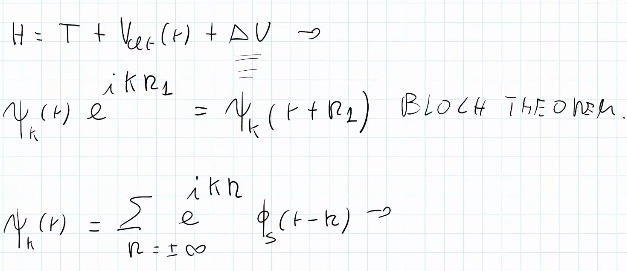 H = T + V_at(r) + ΔU →
ψ_k(r) e^{ikR_1} = ψ_k(r + R_1) BLOCH THEOREM.
ψ_k(r) = Σ_{R = ±∞} e^{ikR} ϕ_s(r-R) →